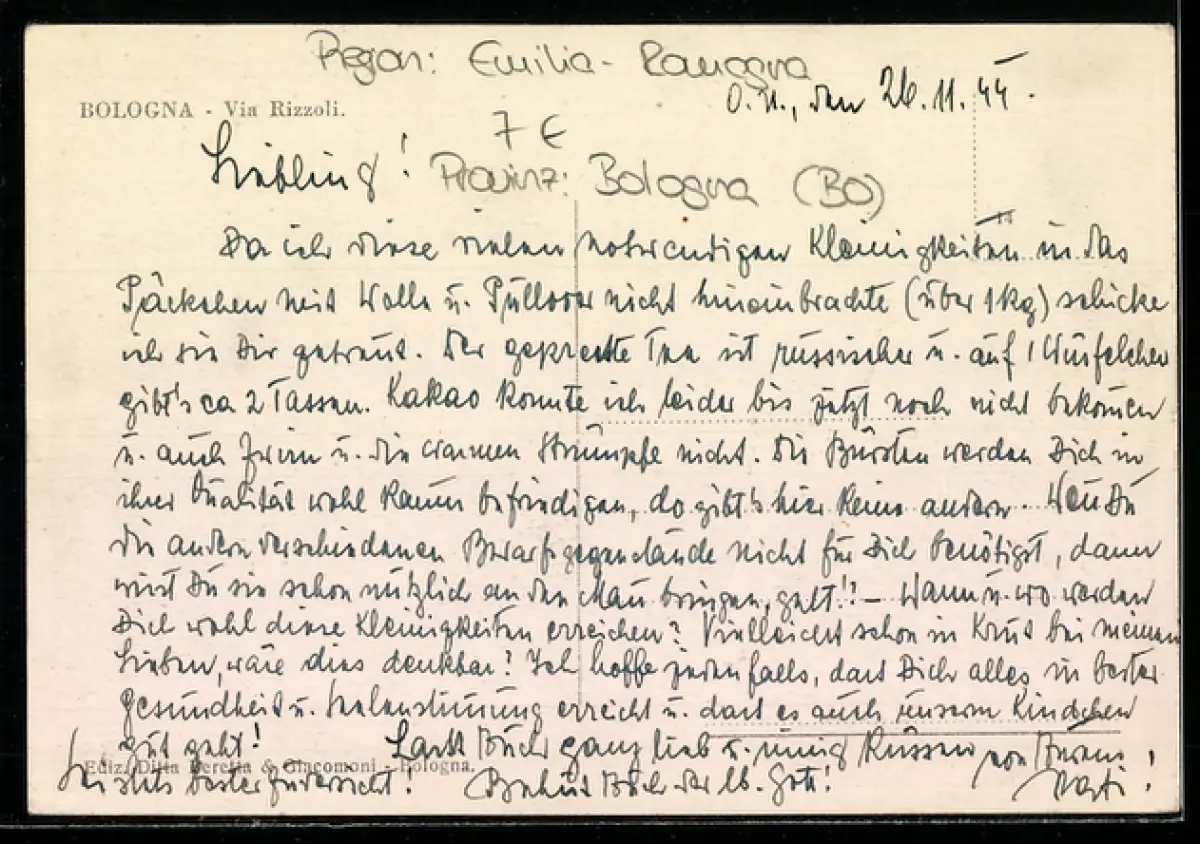 Region: Emilia-Romagna
O.U., den 26.11.44.
BOLOGNA - Via Rizzoli.
7 €
Liebling!
Provinz: Bologna (BO)
Da ich diese vielen notwendigen Kleinigkeiten in das
Päckchen mit Wolle u. Pullover nicht hineinbrachte (über 1 kg) schicke
ich sie Dir getrennt. Der gepresste Tee ist russischer u. auf 1 Würfelchen
gibt's ca 2 Tassen. Kakao konnte ich leider bis jetzt noch nicht bekom̄en
u. auch Zwirn u. die warmen Strümpfe nicht. Die Bürsten werden Dich in
ihrer Qualität wohl kaum befriedigen, do gibt's hier keine andern. Wen̄ Du
die andern verschiedenen Bedarfsgegenstände nicht für Dich benötigst, dann
wirst Du sie schon nützlich an den Man̄ bringen, gelt!! – Wann u. wo werden
Dich wohl diese Kleinigkeiten erreichen? Vielleicht schon in Krut bei meinen
Lieben, wäre dies denkbar? Ich hoffe jedenfalls, dass Dich alles in bester
Gesundheit u. Seelenstim̄ung erreicht u. dass es auch unserm Kindchen
gut geht! Lasst Euch ganz lieb u. innig küssen von Eurem
Ediz. Ditta Beretta & Giacomoni - Bologna.
Sei stets bester Zuversicht! Behüt Euch der lb. Gott!